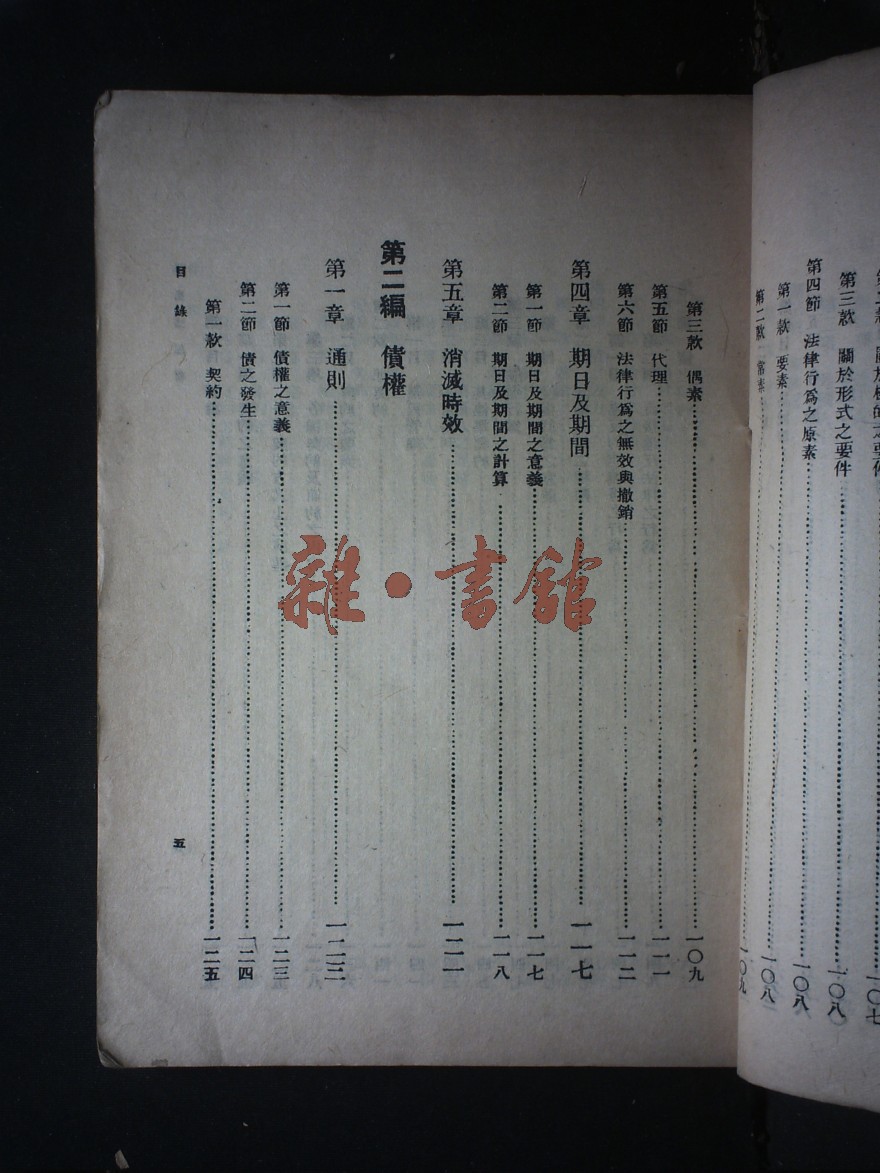 第三款 關於形式之要件……一〇八
第四節 法律行爲之原素……一〇八
第一款 要素……一〇八
第二款 常素……一〇九
第三款 偶素……一〇九
第五節 代理……一一一
第六節 法律行爲之無效與撤銷……一一二
第四章 期日及期間……一一七
第一節 期日及期間之意義……一一七
第二節 期日及期間之計算……一一八
第五章 消滅時效……一二一
第二編 債權
第一章 通則……一二三
第一節 債權之意義……一二三
第二節 債之發生……一二四
第一款 契約……一二五
目錄
五
雜·書館